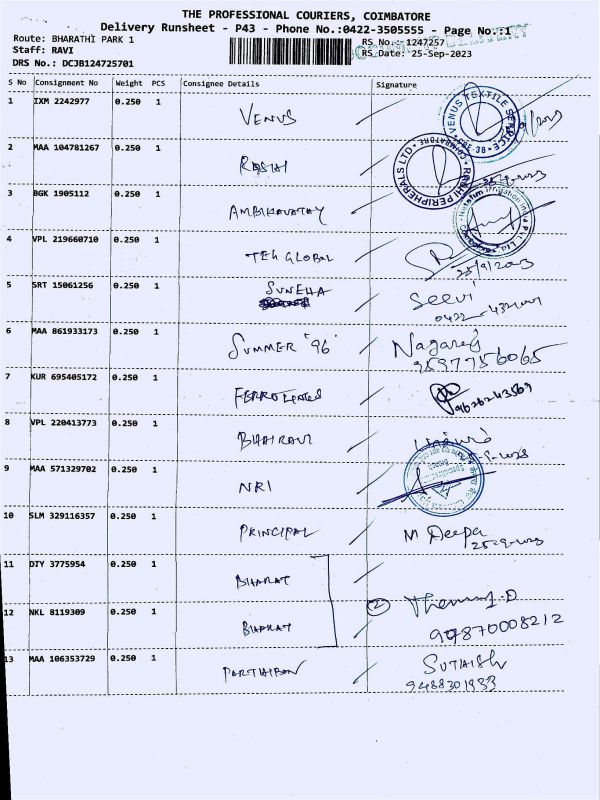 THE PROFESSIONAL COURIERS, COIMBATORE
Delivery Runsheet - P43 - Phone No.:0422-3505555 - Page No.:1
Route: BHARATHI PARK 1 RS No.: 1247257
Staff: RAVI RS Date: 25-Sep-2023
DRS No.: DCJB124725701
S No Consignment No Weight PCS Consignee Details Signature
1 IXM 2242977 0.250 1 VENUS
VENUS TEXTILE SERVICE
CBE-38
2 MAA 104781267 0.250 1 RASHI
RASHI PERIPHERALS LTD
COIMBATORE
3 BGK 1905112 0.250 1
4 VPL 219660710 0.250 1 GLOBAL
25/9/2023
5 SRT 15061256 0.250 1 SUNEHA
6 MAA 861933173 0.250 1 SUMMER "96" Nagaraj
9597756065
7 KUR 695405172 0.250 1
9626243569
8 VPL 220413773 0.250 1 BHAIRAVI
9 MAA 571329702 0.250 1 NRI
10 SLM 329116357 0.250 1 PRINCIPAL M Deepa
25-9-2023
11 DIY 3775954 0.250 1 BHARAT
12 NKL 8119309 0.250 1 BHARAT 2
9870008212
13 MAA 106353729 0.250 1 PARTHIBAN SUTHISH
9488301933